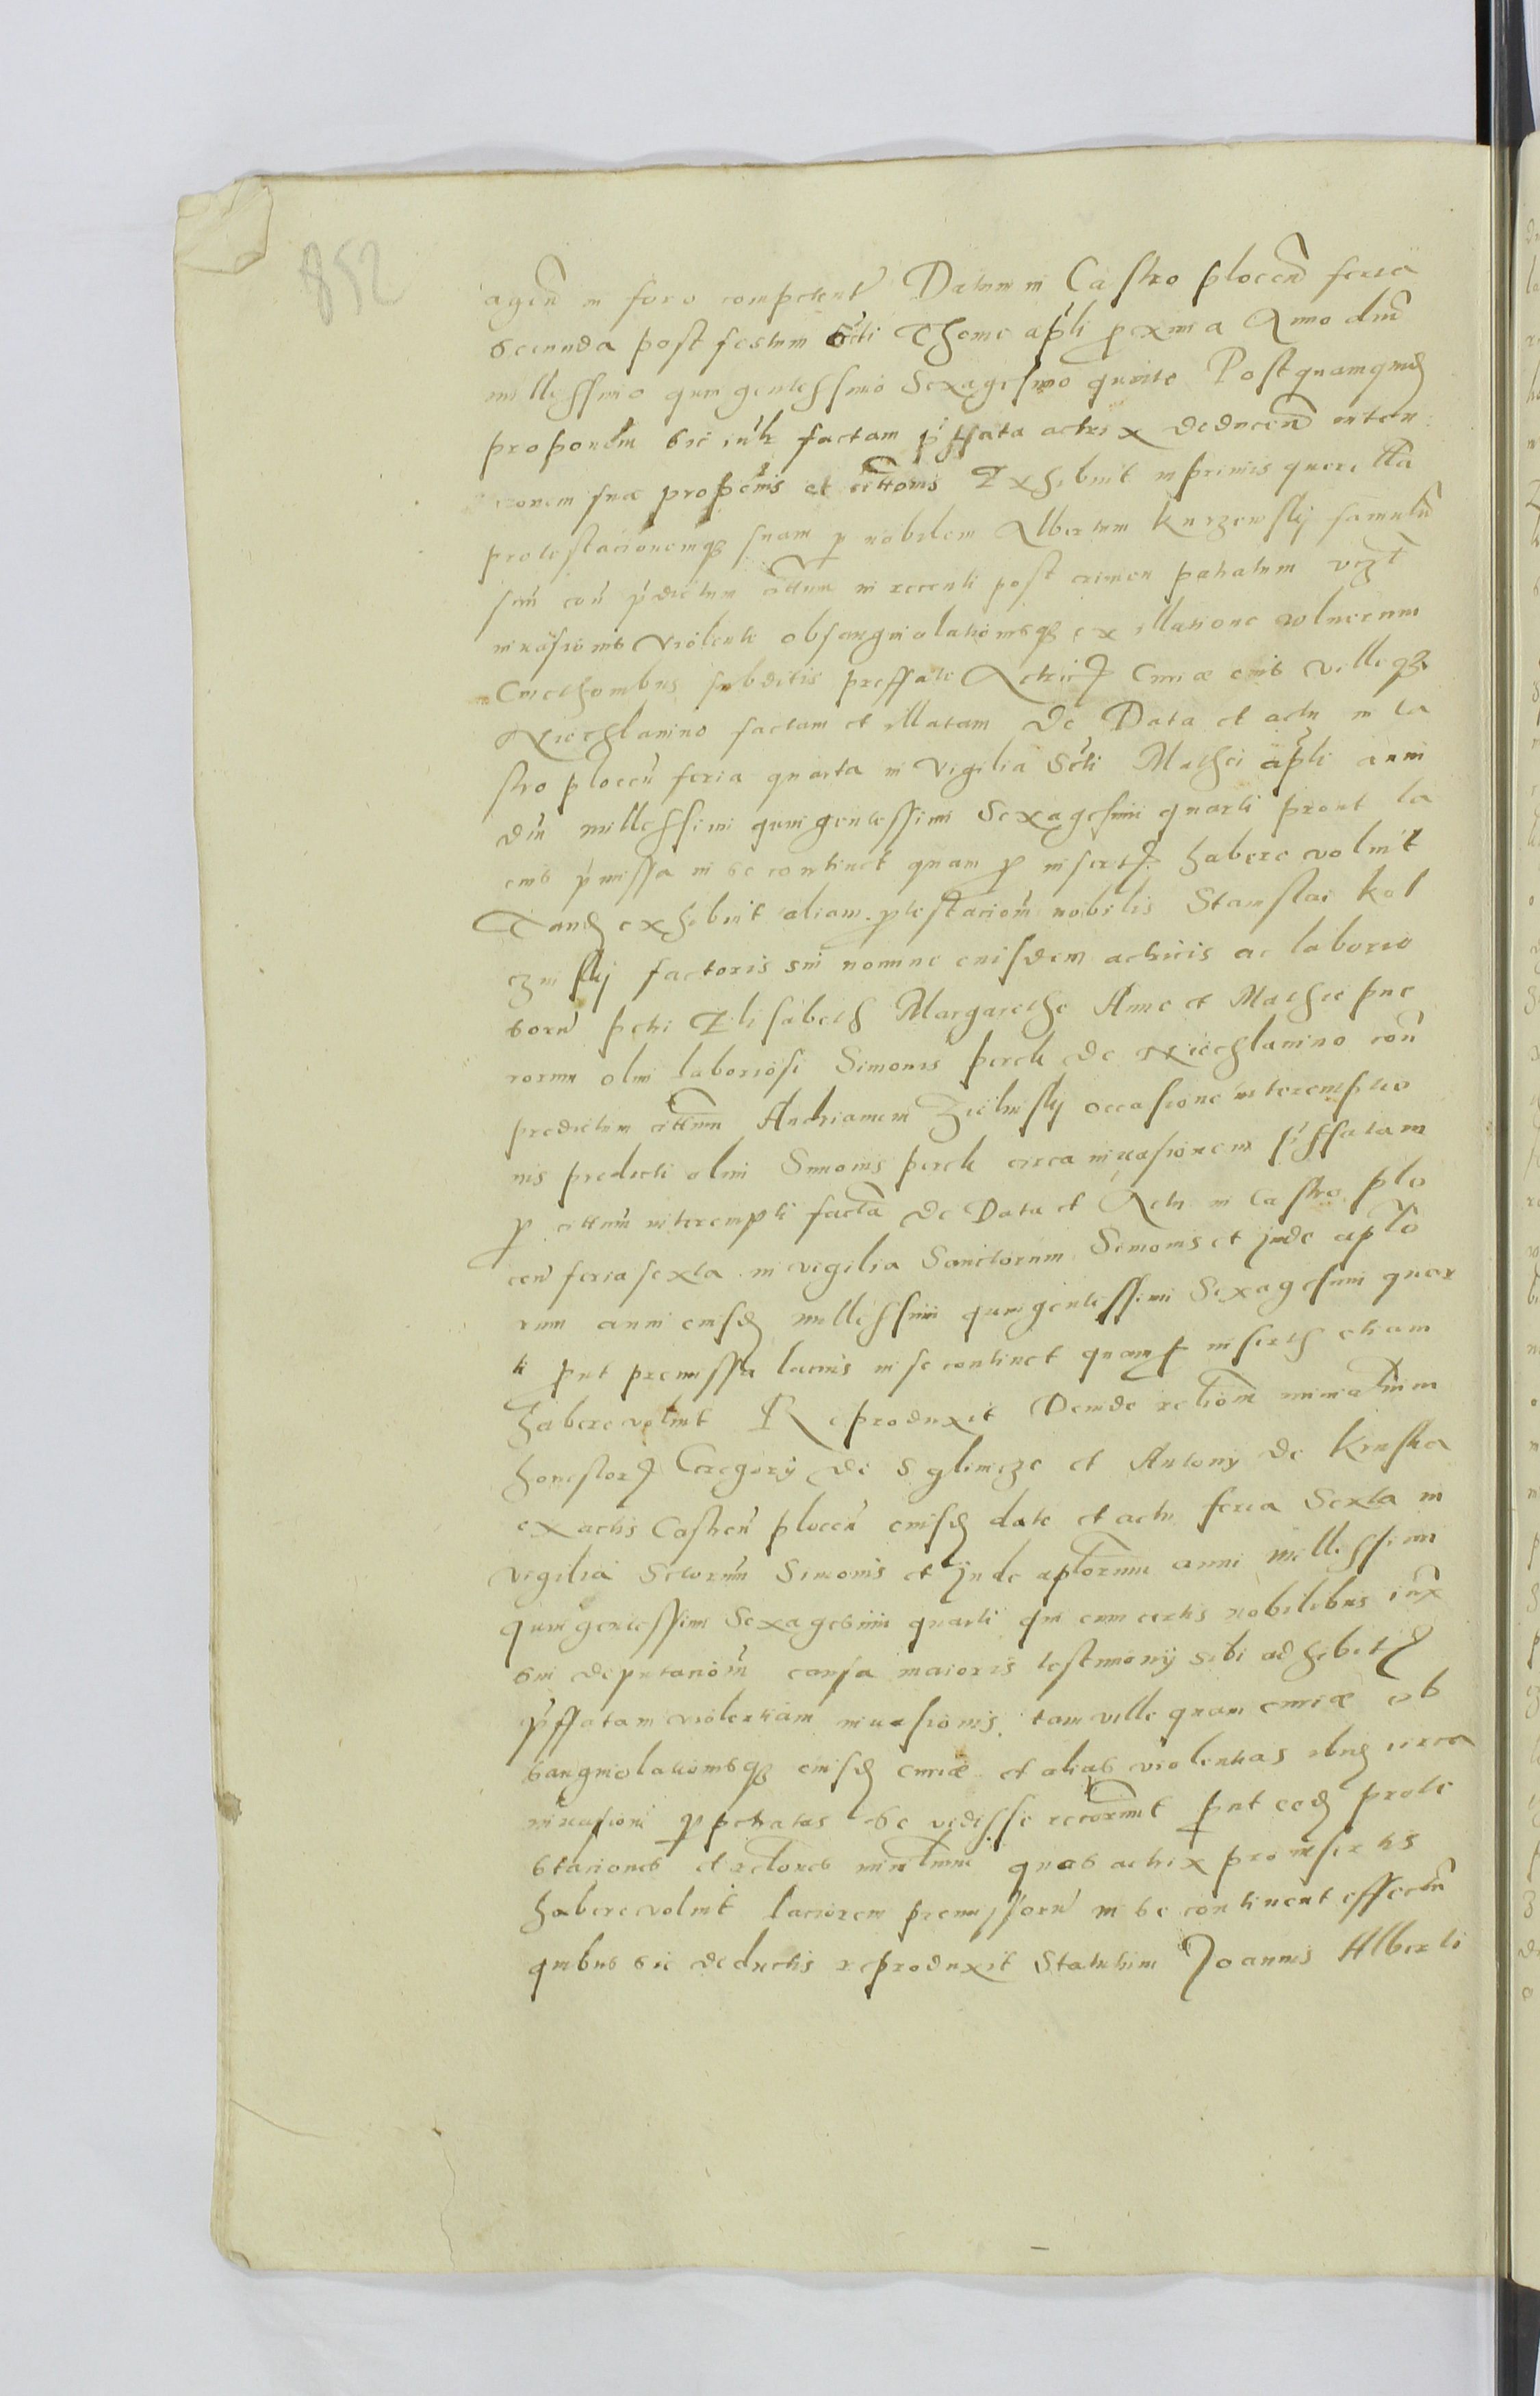 852
agen in foro competenti Datum in Castro plocen feria
secunda post festum Scti Thome apli proxima Anno dni
millessimo quingentessimo Sexagesimo quinto Postquamquid
proponem sic inter factam pffata actrix deducen inten
cionem sue propcnis et cittonis Exhibuit inprimis querella
protestacionemq suam p nobilem Albertum Kurzewskj famulu
suu con pdictum cittum in recenti post crimen patratum vczt
inuasionis violente obsanguiolationisq ex illatione wlnerum
Cmethonibus subditis preffate Actricis Curiæ eius villeqz
Kiechlanino factam et illatam De Data et actu in Ca
stro plocen feria quarta in vigilia Scti Mathei apli anni
dni millessimi quingentessimi Sexagesimi quarti prout la
cius pmissa in se continet quam p insertis habere voluit
Tand exhibuit aliam ptestacionem nobilis Stanislai Kol
czinskj factoris sui nomine eiusdem actricis ac laborio
soru petri Elisabeth Margarethe Anne et Mathie pue
rorum olim laboriosi Simonis perek de Kiechlanino con
predictum cittum Andream Zielinskj occasione interemptio
nis predicti olim Simonis perek circa inuasionem pffatam
p cittum interempti facta De Data et Actu in Castro plo
cen feria sexta in vigilia Sanctorum Simonis et Jude aplo
rum anni eiusd millessimi quingentessimi Sexagesimi quar
ti put premissa lacius in se continet quam p insertis etiam
habere voluit Reproduxit Deinde rellonem ministrlium
honestor Gregorij de Sglinicze et Antonij de Kruska
ex actis Castren plocen eiusd date et actu feria Sexta in
vigilia Sctorum Simonis et Jude aplorum anni millessimi
quingentessimi Sexagesimi quarti qui cum certis nobilibus iux
sui deputacionem causa maioris testimonij sibi adhibitis
pffatam violentiam inuasionis tam ville quam curiæ ob
sanguiolationisq eiusd curiæ et alias violentias ibid circa
inuasioni ppetratas se vidisse recorunt put eed prote
staciones et rellones ministlium quas actrix pro insertis
habere voluit laciorem premissoru in se continent effectu
quibus sic deductis reproduxit Statutum Joannis Alberti